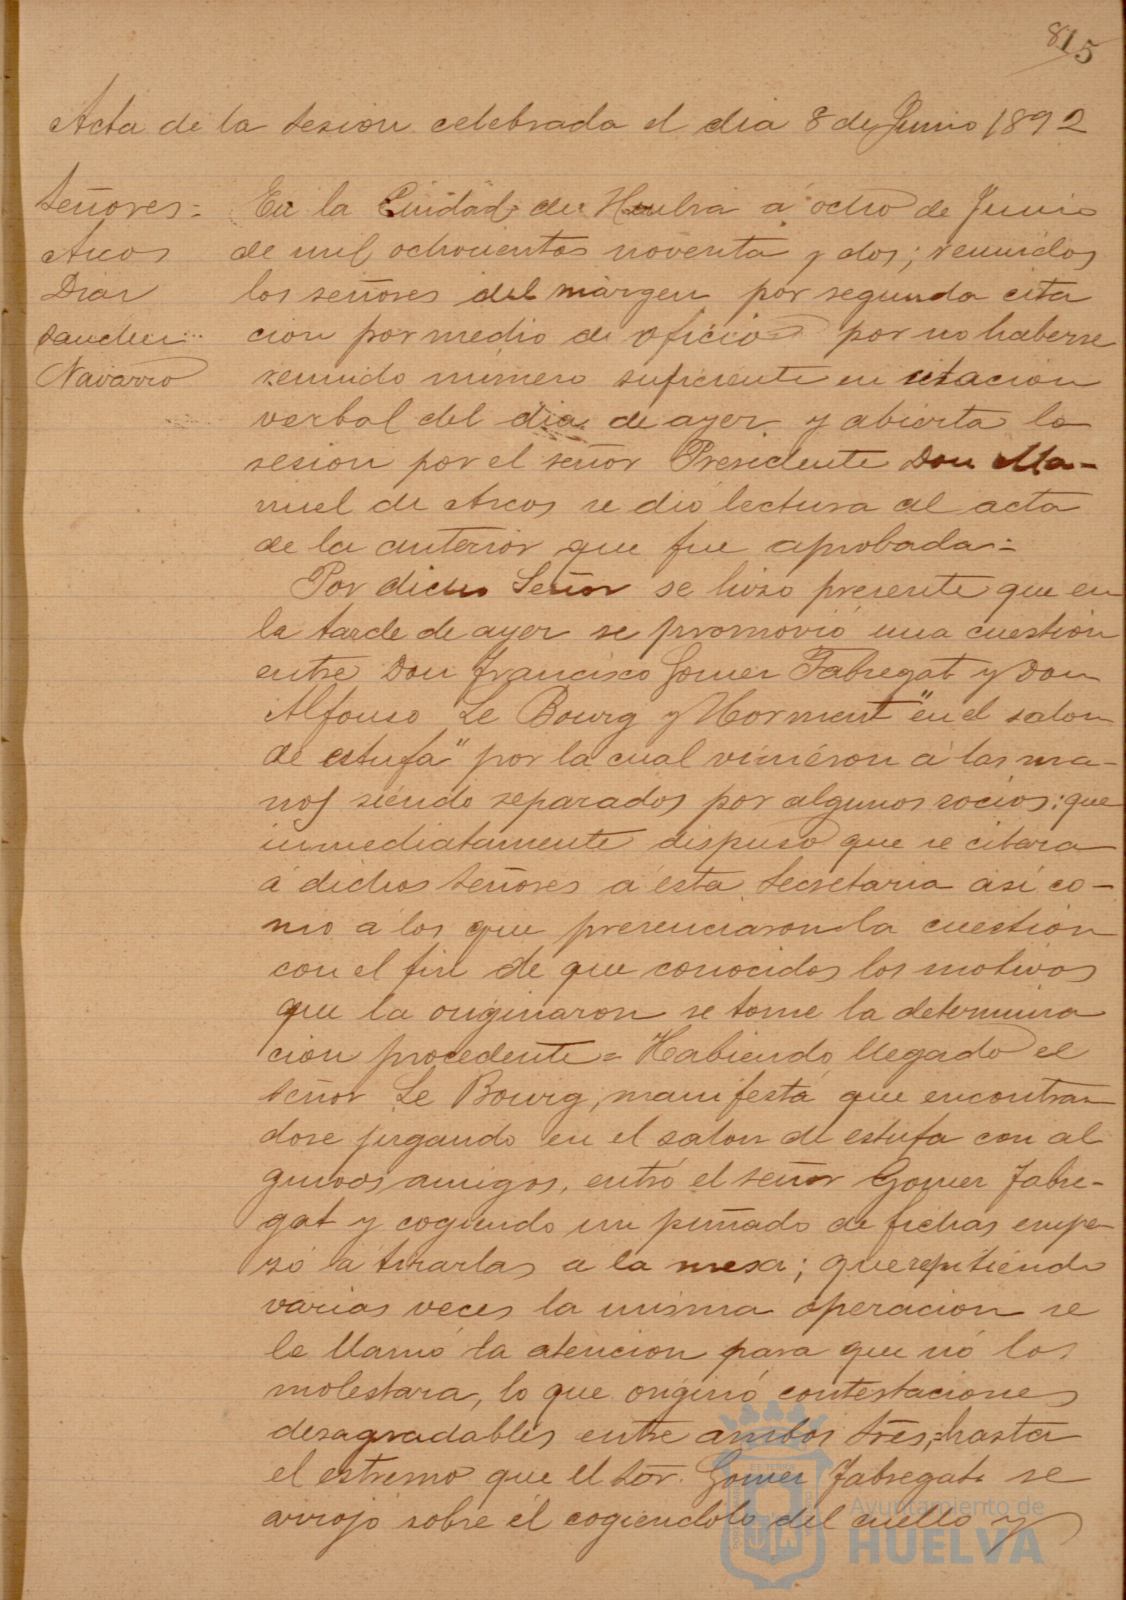 815
Acta de la sesion celebrada el dia 8 de Junio 1892
Señores =
Arcos
Diaz
Sanchez
Navarro
En la Ciudad de Huelva á ocho de Junio
de mil ochocientos noventa y dos; reunidos
los señores del márgen por segunda cita
cion por medio de oficio por no haberse
reunido número suficiente en citacion
verbal del dia de ayer y abierta la
sesion por el señor Presidente Don Ma-
nuel de Arcos se dió lectura al acta
de la anterior que fue aprobada =
Por dicho Señor se hizo presente que en
la tarde de ayer se promovió una cuestion
entre Don Francisco Gomez Fabregat y Don
Alfonso Le Bourg y Morment "en el salon
de estufa" por la cual vinieron á las ma-
nos siendo separados por algunos socios: que
inmediatamente dispuso que se citara
á dichos señores á esta Secretaria asi co-
mo á los que presenciaron la cuestion
con el fin de que conocidos los motivos
que la originaron se tome la determina
cion procedente = Habiendo llegado el
Señor Le Bourg, manifestá que encontran
dose jugando en el salon de estufa con al
gunos amigos, entró el señor Gomez Fabre-
gat y cogiendo un puñado de fichas empe
zó a tirarlas a la mesa; que repitiendo
varias veces la misma operacion se
le llamó la atencion para que nó los
molestara, lo que originó contestaciones
desagradables entre ambos tres, hasta
el estremo que el Sor. Gomez Fabregat se
arrojó sobre él cogiendolo del cuello y
Ayuntamiento de
HUELVA